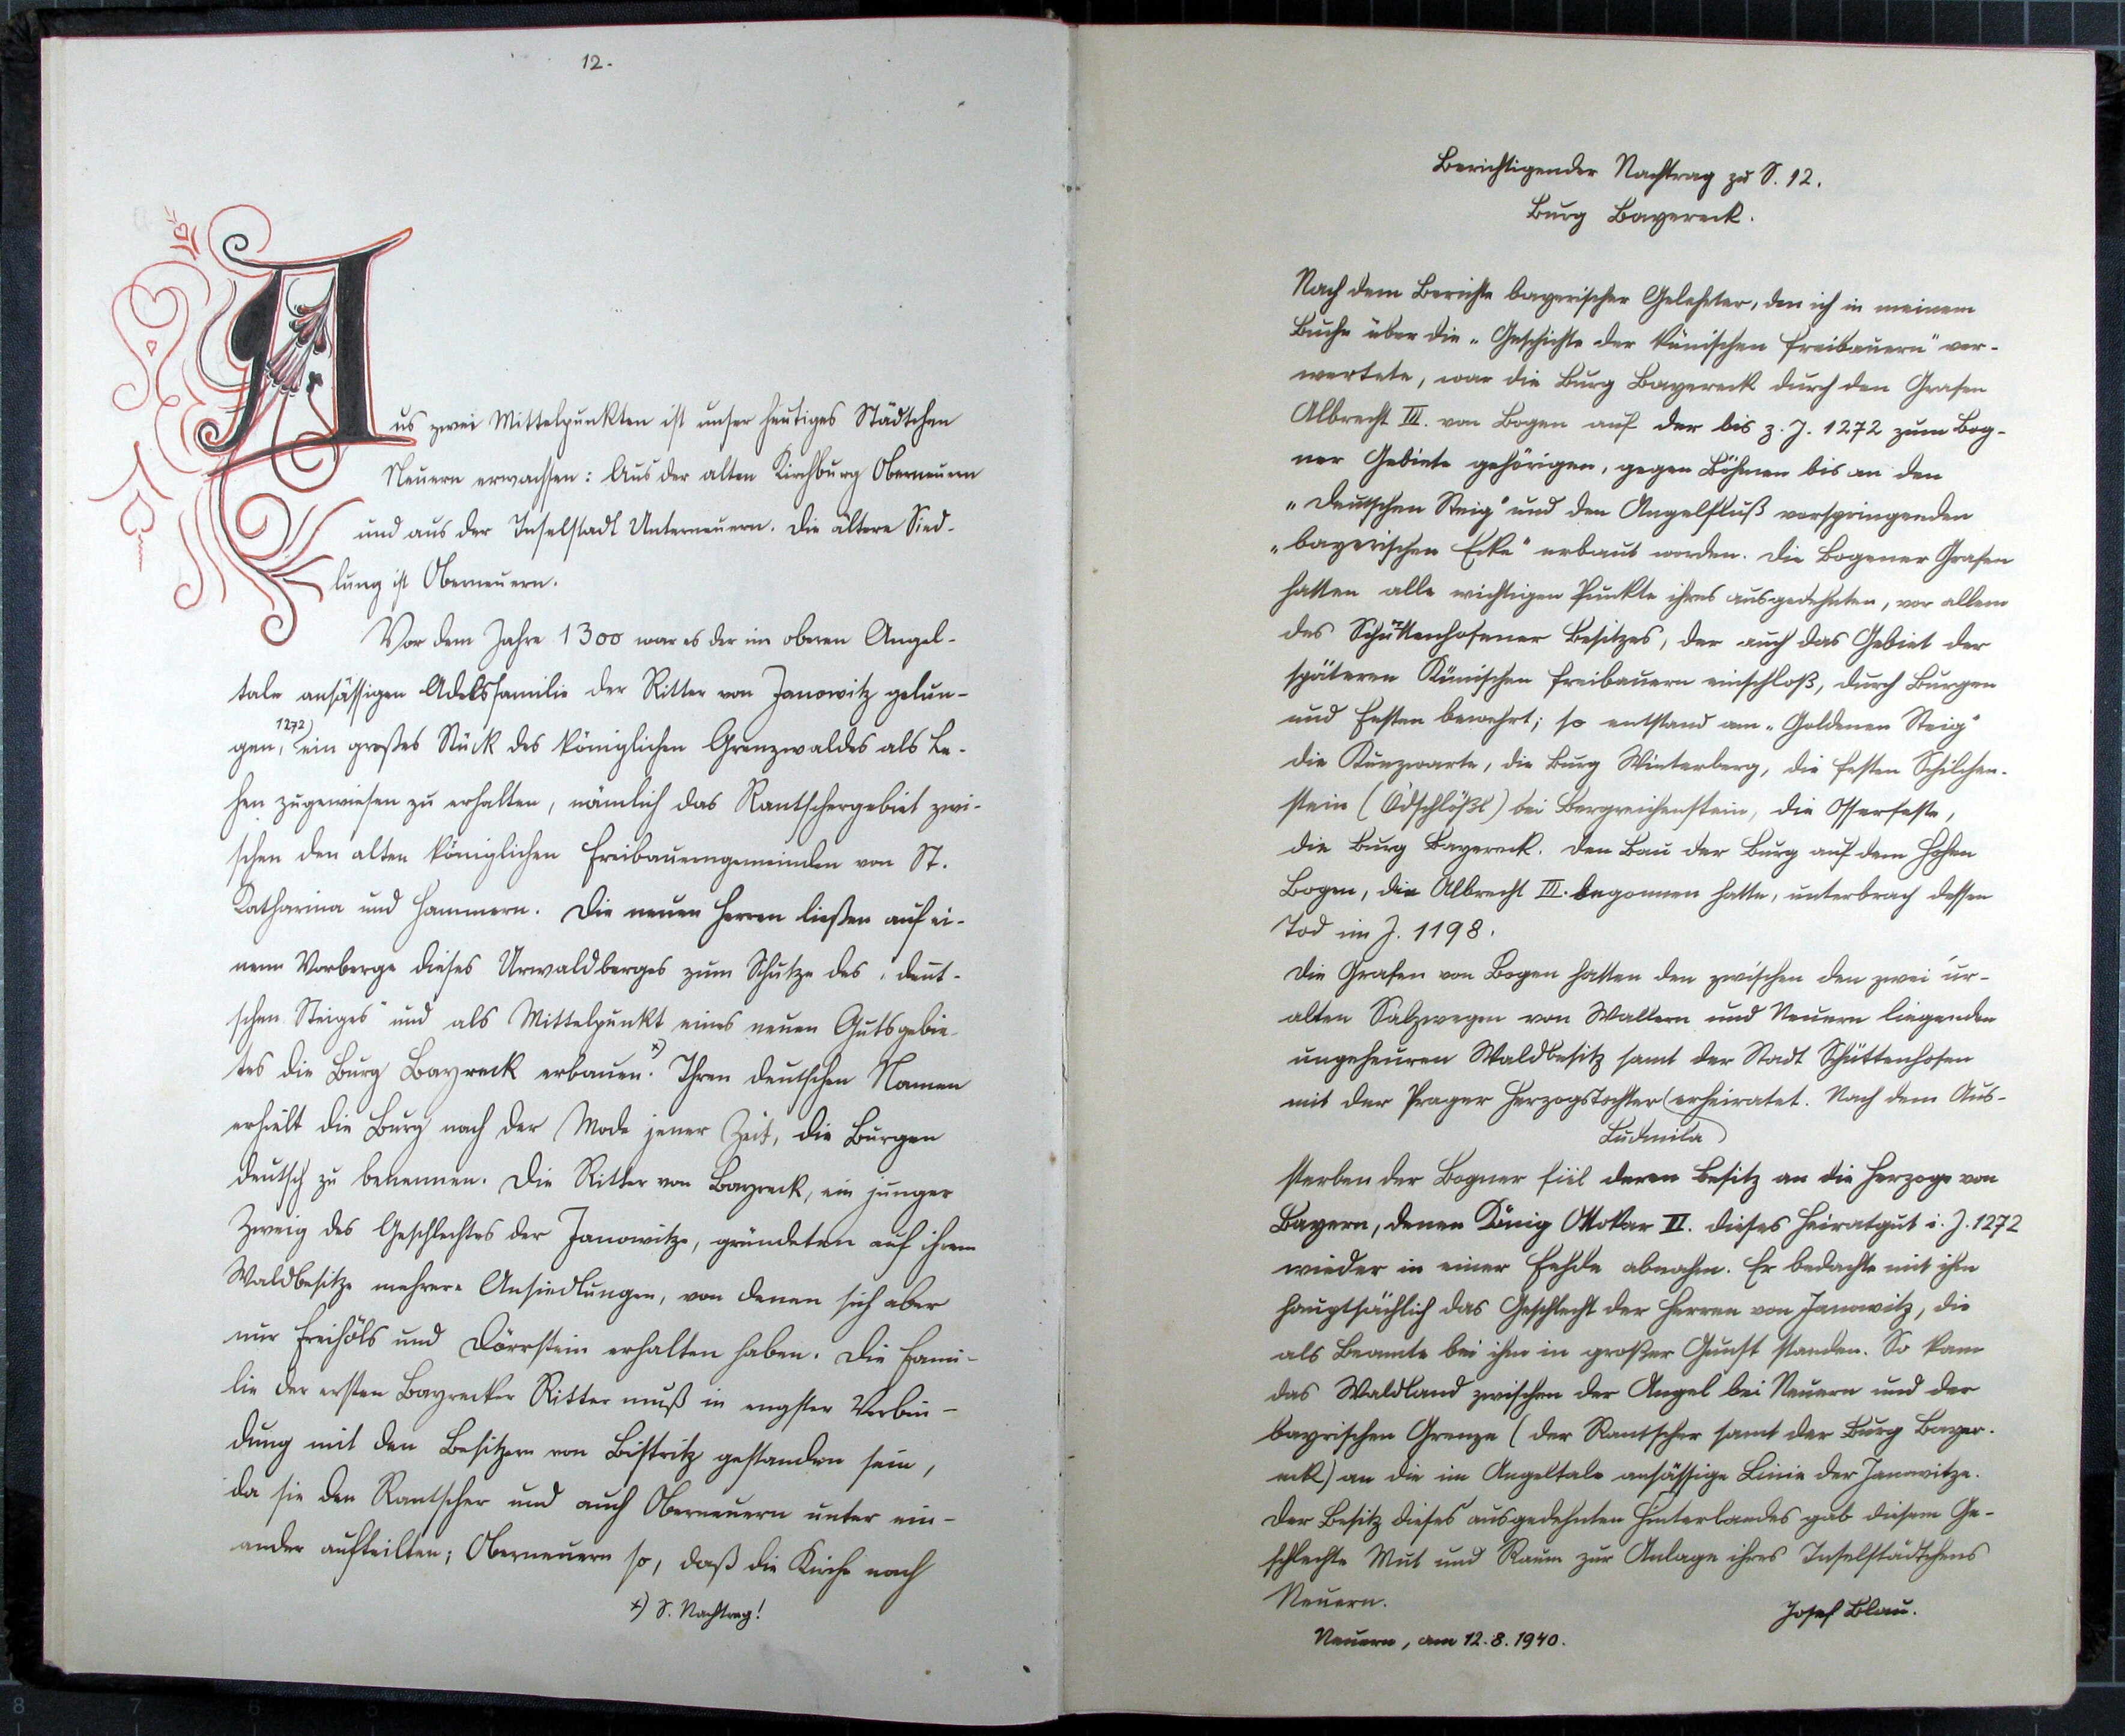 12.
Aus zwei Mittelpunkten ist unser heutiges Städtchen
Neuern erwachsen: Aus der alten Kirchburg Oberneuern
und aus der Inselstadt Unterneuern. Die ältere Sied-
lung ist Oberneuern.
Vor dem Jahre 1300 war es der im oberen Angel-
tale ansässigen Adelsfamilie der Ritter von Janowitz gelun-
1272)
gen, ein großes Stück des königlichen Grenzwaldes als Le-
hen zugewiesen zu erhalten, nämlich das Rantschergebiet zwi-
schen den alten königlichen Freibauerngemeinden von St.
Katharina und Hammern. Die neuen Herren ließen auf ei-
nem Vorberge dieses Urwaldberges zum Schutze des „deut-
schen Steiges" und als Mittelpunkt eines neuen Gutsgebie-
tes die Burg Bayreck erbauen.x) Ihren deutschen Namen
erhielt die Burg nach der Mode jener Zeit, die Burgen
deutsch zu benennen. Die Ritter von Bayreck, ein junger
Zweig des Geschlechtes der Janowitze, gründeten auf ihrem
Waldbesitze mehrere Ansiedlungen, von denen sich aber
nur Freihöls und Dörrstein erhalten haben. Die Fami-
lie der ersten Bayrecker Ritter muß in engster Verbin-
dung mit den Besitzern von Bistritz gestanden sein,
da sie den Rantscher und auch Oberneuern unter ein-
ander aufteilten; Oberneuern so, daß die Kirche nach
x) S. Nachtrag!
Berichtigender Nachtrag zu S. 12.
Burg Bayereck.
Nach dem Berichte bayerischer Gelehrter, den ich in meinem
Buche über die „Geschichte der künischen Freibauern" ver-
wertete, war die Burg Bayereck durch den Grafen
Albrecht III. von Bogen auf der bis z. J. 1272 zum Bog-
ner Gebiete gehörigen, gegen Böhmen bis an den
„Deutschen Steig" und den Angelfluß vorspringenden
„bayerischen Ecke" erbaut worden. Die Bogener Grafen
hatten alle wichtigen Punkte ihres ausgedehnten, vor allem
des Schüttenhofener Besitzes, der auch das Gebiet der
späteren Künischen Freibauern einschloß, durch Burgen
und Festen bewehrt; so entstand am „Goldenen Steig"
die Kunzwarte, die Burg Winterberg, die Festen Schilchen-
stein (Ödschlößl) bei Bergreichenstein, die Osserfeste,
die Burg Bayereck. Den Bau der Burg auf dem Hohen
Bogen, die Albrecht III. begonnen hatte, unterbrach dessen
Tod im J. 1198.
Die Grafen von Bogen hatten den zwischen den zwei ur-
alten Salzwegen von Wallern und Neuern liegenden
ungeheuren Waldbesitz samt der Stadt Schüttenhofen
mit der Prager Herzogstochter (erheiratet. Nach dem Aus-
Ludmila)
sterben der Bogner fiel deren Besitz an die Herzoge von
Bayern, denen König Ottokar II. dieses Heiratgut i. J. 1272
wieder in einer Fehde abnahm. Er bedachte mit ihm
hauptsächlich das Geschlecht der Herren von Janowitz, die
als Beamte bei ihm in großer Gunst standen. So kam
das Waldland zwischen der Angel bei Neuern und der
bayrischen Grenze (der Rantscher samt der Burg Bayer-
eck) an die im Angeltale ansässige Linie der Janowitze.
Der Besitz dieses ausgedehnten Hinterlandes gab diesem Ge-
schlechte Mut und Raum zur Anlage ihres Inselstädtchens
Neuern.
Josef Blau.
Neuern, am 12.8.1940.